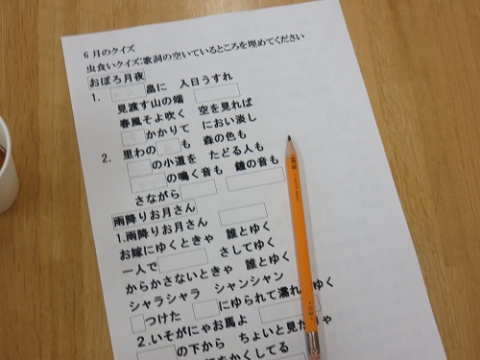 6月のクイズ
虫食いクイズ:歌詞の空いているところを埋めてください
おぼろ月夜
1. 畠に 入日うすれ
見渡す山の端
春風そよ吹く 空を見れば
かかりて におい淡し
2. 里わの も 森の色も
の小道を たどる人も
の鳴く音も 鐘の音も
さながら
雨降りお月さん
1.雨降りお月さん
お嫁にゆくときゃ 誰とゆく
一人で さしてゆく
からかさないときゃ 誰とゆく
シャラシャラ シャンシャン
つけた にゆられて濡れ ゆく
2.いそがにゃお馬よ
の下から ちょいと見た ゃ
をかくしてる